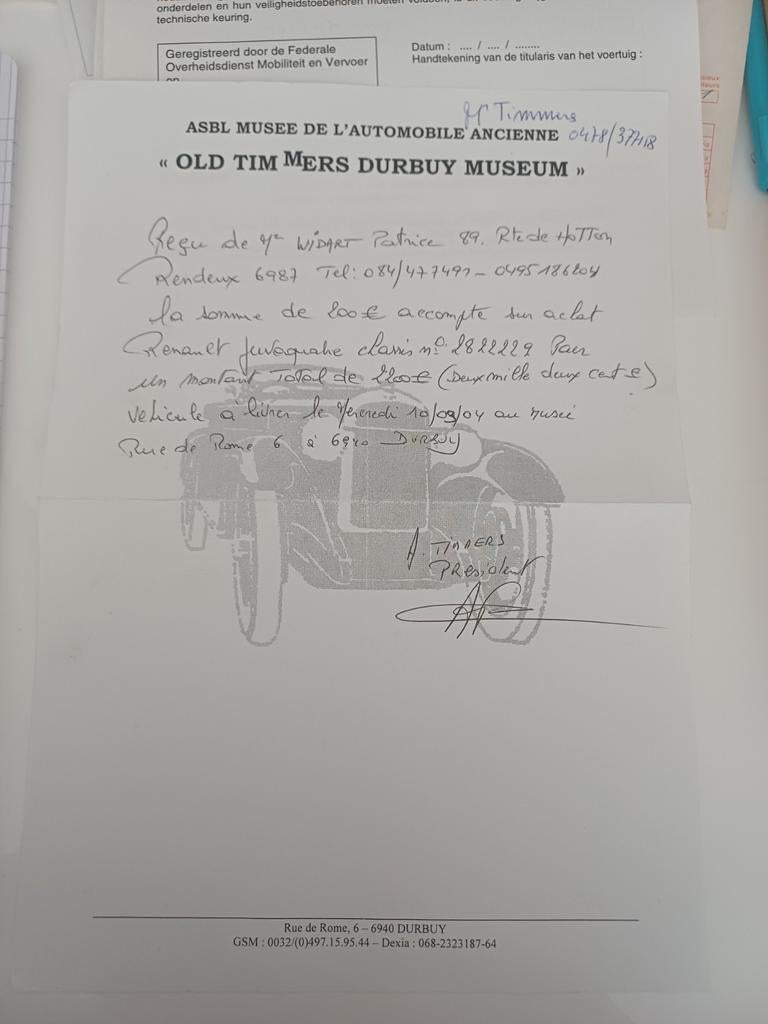 onderdelen en hun veiligheidstoebehoren moeten
technische keuring.
Geregistreerd door de Federale
Overheidsdienst Mobiliteit en Vervoer
op
Datum : .... / .... / ........
Handtekening van de titularis van het voertuig :
Mr Timmers
ASBL MUSEE DE L'AUTOMOBILE ANCIENNE 0478/377418
« OLD TIM MERS DURBUY MUSEUM »
Reçu de Mr WIDART Patrice 89. Rte de HOTTON
Rendeux 6987 Tel: 084/477491 - 0495186204
la somme de 200€ accompte sur achat
Renault Juvaquatre classis n° 2822229 Pour
un montant Total de 2200€ (Deux mille deux cent €)
vehicule à livrer le Vendredi 10/09/04 au musée
Rue de Rome 6 à 6940 DURBUY
A. TIMMERS
PResident
Rue de Rome, 6 – 6940 DURBUY
GSM : 0032/(0)497.15.95.44 – Dexia : 068-2323187-64